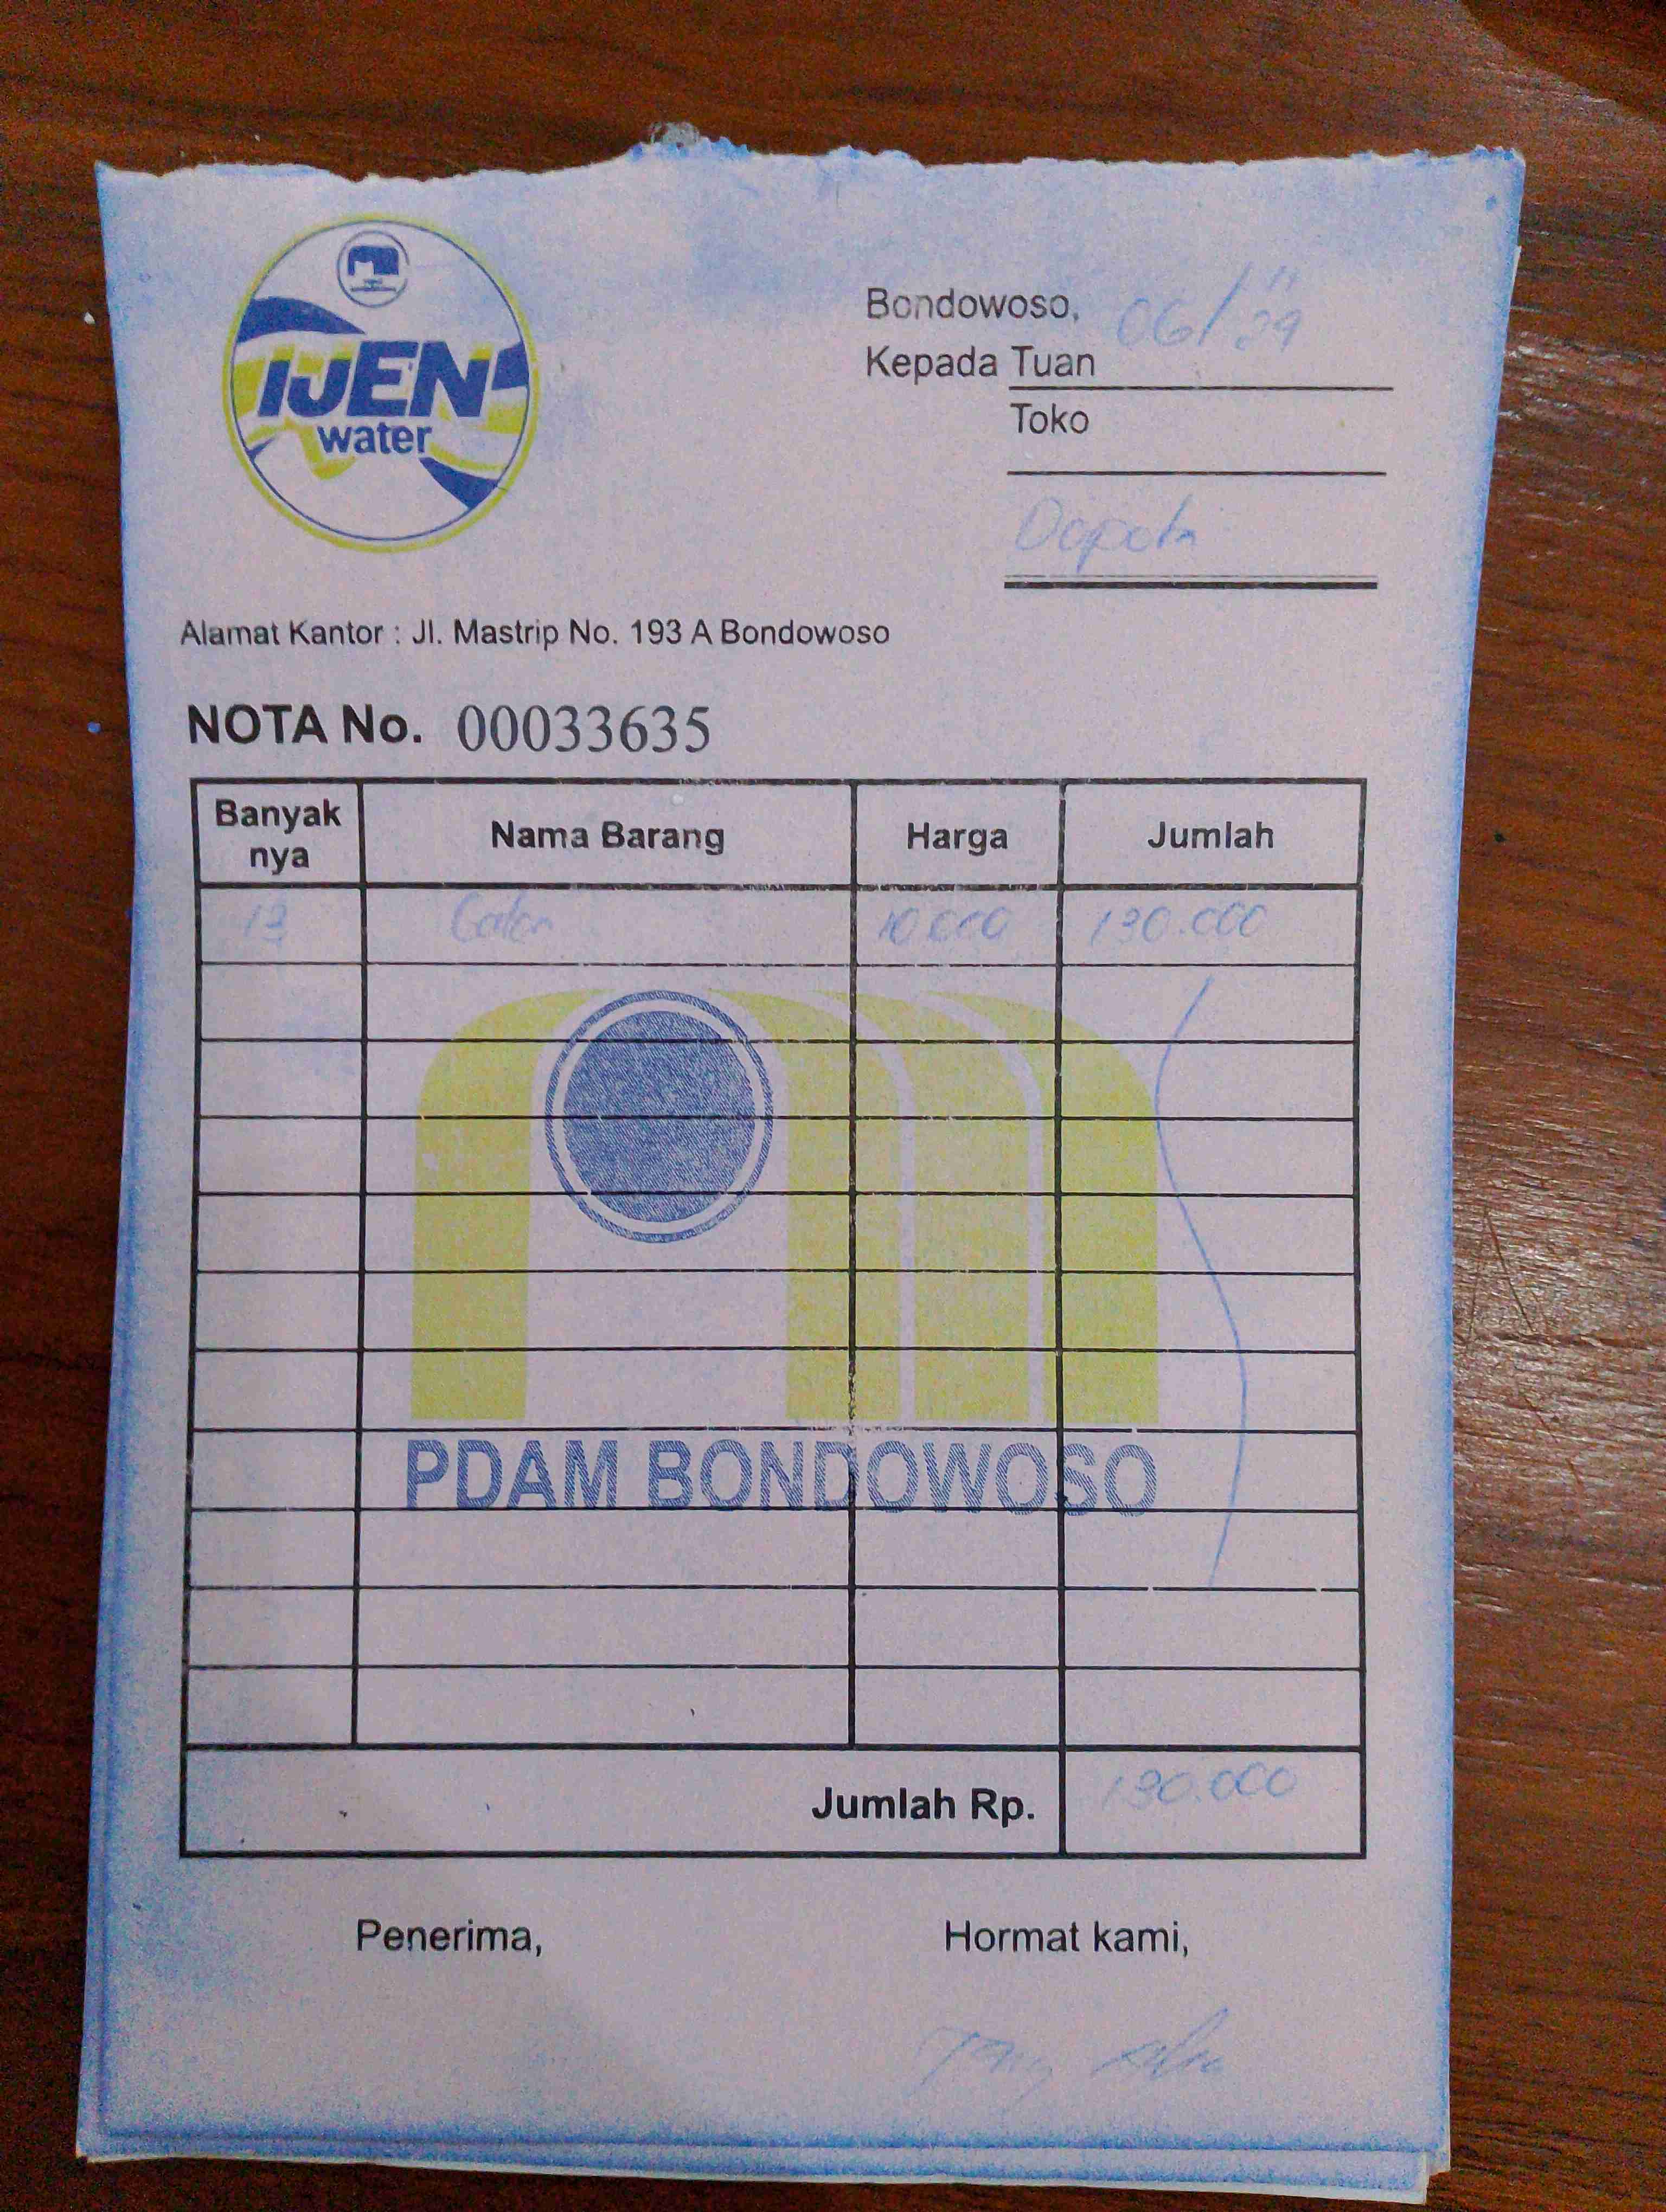 IJEN
water
Bondowoso, 06/11 24
Kepada Tuan
Toko
Alamat Kantor : Jl. Mastrip No. 193 A Bondowoso
NOTA No. 00033635
Banyak nya Nama Barang Harga Jumlah
13 Galon 10.000 130.000
PDAM BONDOWOSO
Jumlah Rp. 130.000
Penerima, Hormat kami,